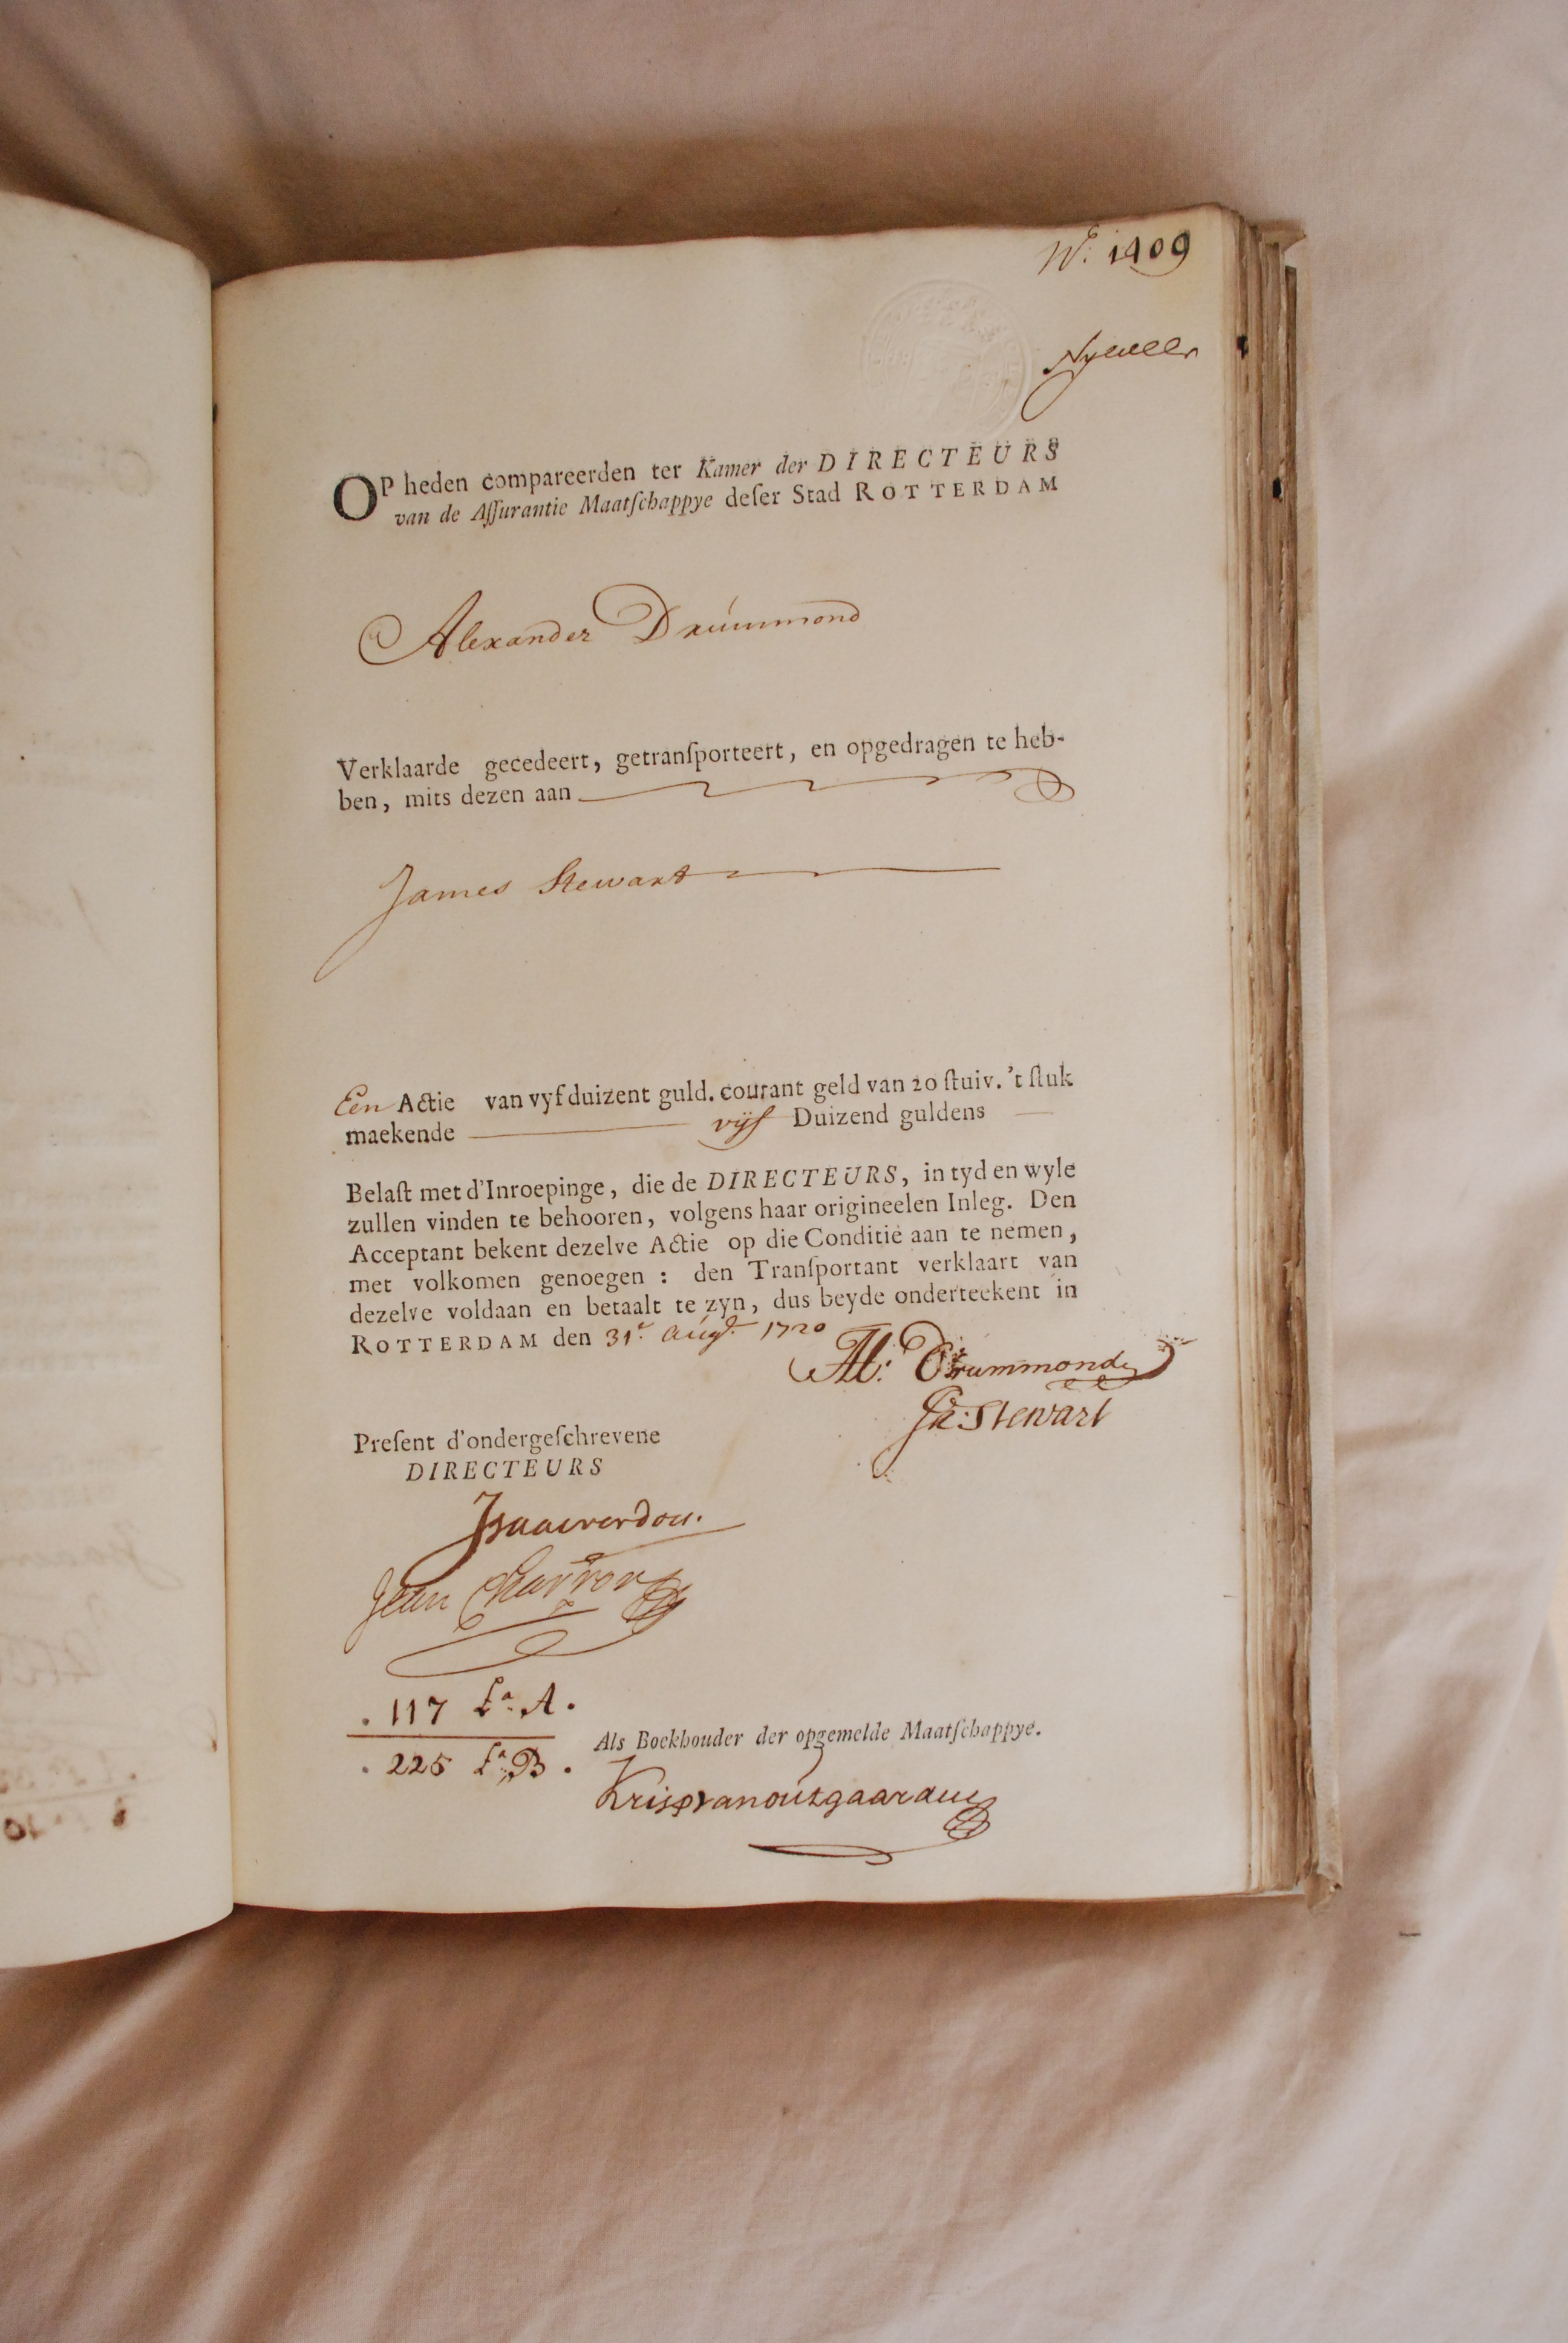 N:o 1409
OP heden compareerden ter Kamer der DIRECTEURS
van de Aſſurantie Maatſchappye deſer Stad ROTTERDAM
Alexander Drummond
Verklaarde gecedeert, getranſporteert, en opgedragen te heb-
ben, mits dezen aan
James Stewart
Een Actie van vyf duizent guld. courant geld van 20 ſtuiv. 't ſtuk
maekende vijf Duizend guldens
Belaſt met d'Inroepinge, die de DIRECTEURS, in tyd en wyle
zullen vinden te behooren, volgens haar origineelen Inleg. Den
Acceptant bekent dezelve Actie op die Conditie aan te nemen,
met volkomen genoegen : den Tranſportant verklaart van
dezelve voldaan en betaalt te zyn, dus beyde onderteekent in
ROTTERDAM den 31.e Augt. 1720
Al: Drummond
Ja: Stewart
Preſent d'ondergeſchrevene
DIRECTEURS
Isaac verdou.
Jean Charron
. 117 La. A .
. 225 La. B .
Als Boekhouder der opgemelde Maatſchappye.